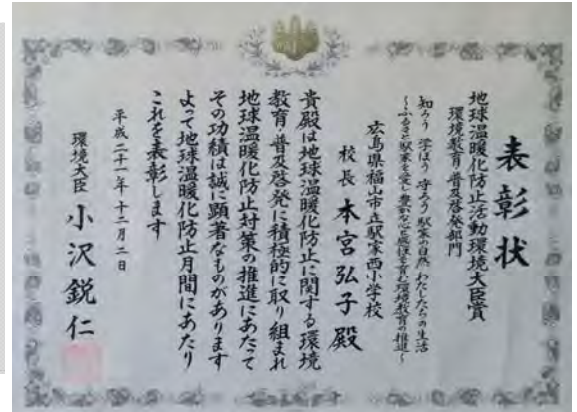 表彰状
地球温暖化防止活動環境大臣賞
環境教育・普及啓発部門
知ろう 学ぼう 守ろう 駅家の自然 わたしたちの生活
～ふるさと駅家を愛し 豊かな心と感性を育む環境教育の推進～
広島県福山市立駅家西小学校
校長 本宮弘子 殿
貴殿は地球温暖化防止に関する環境
教育・普及啓発に積極的に取り組まれ
地球温暖化防止対策の推進にあたって
その功績は誠に顕著なものがあります
よって地球温暖化防止月間にあたり
これを表彰します
平成二十一年十二月二日
環境大臣 小沢鋭仁